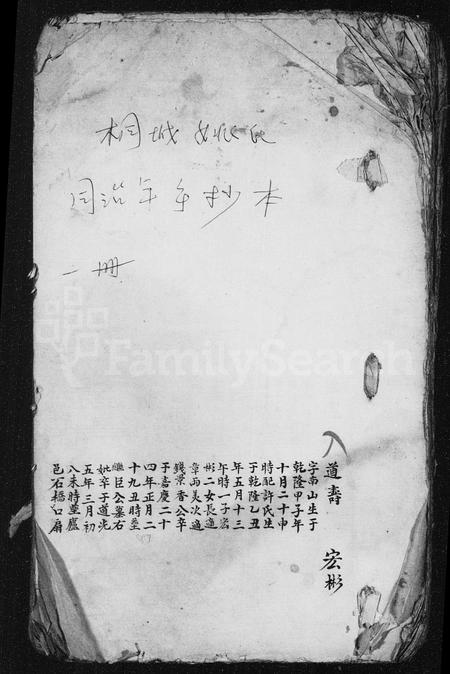 桐城姚氏
同治年手抄本
一册
FamilySearch
道壽
宏彬
字南山生于
乾隆甲子年
十月二十申
時配許氏生
于乾隆乙丑
年五月十三
午時一子宏
彬二女長適
章雨美次適
錢景香公卒
于嘉慶二十
四年正月二
十九丑時塟
臣公墓右
妣卒于道光
五年三月初
八未時塟廬
邑石橋口